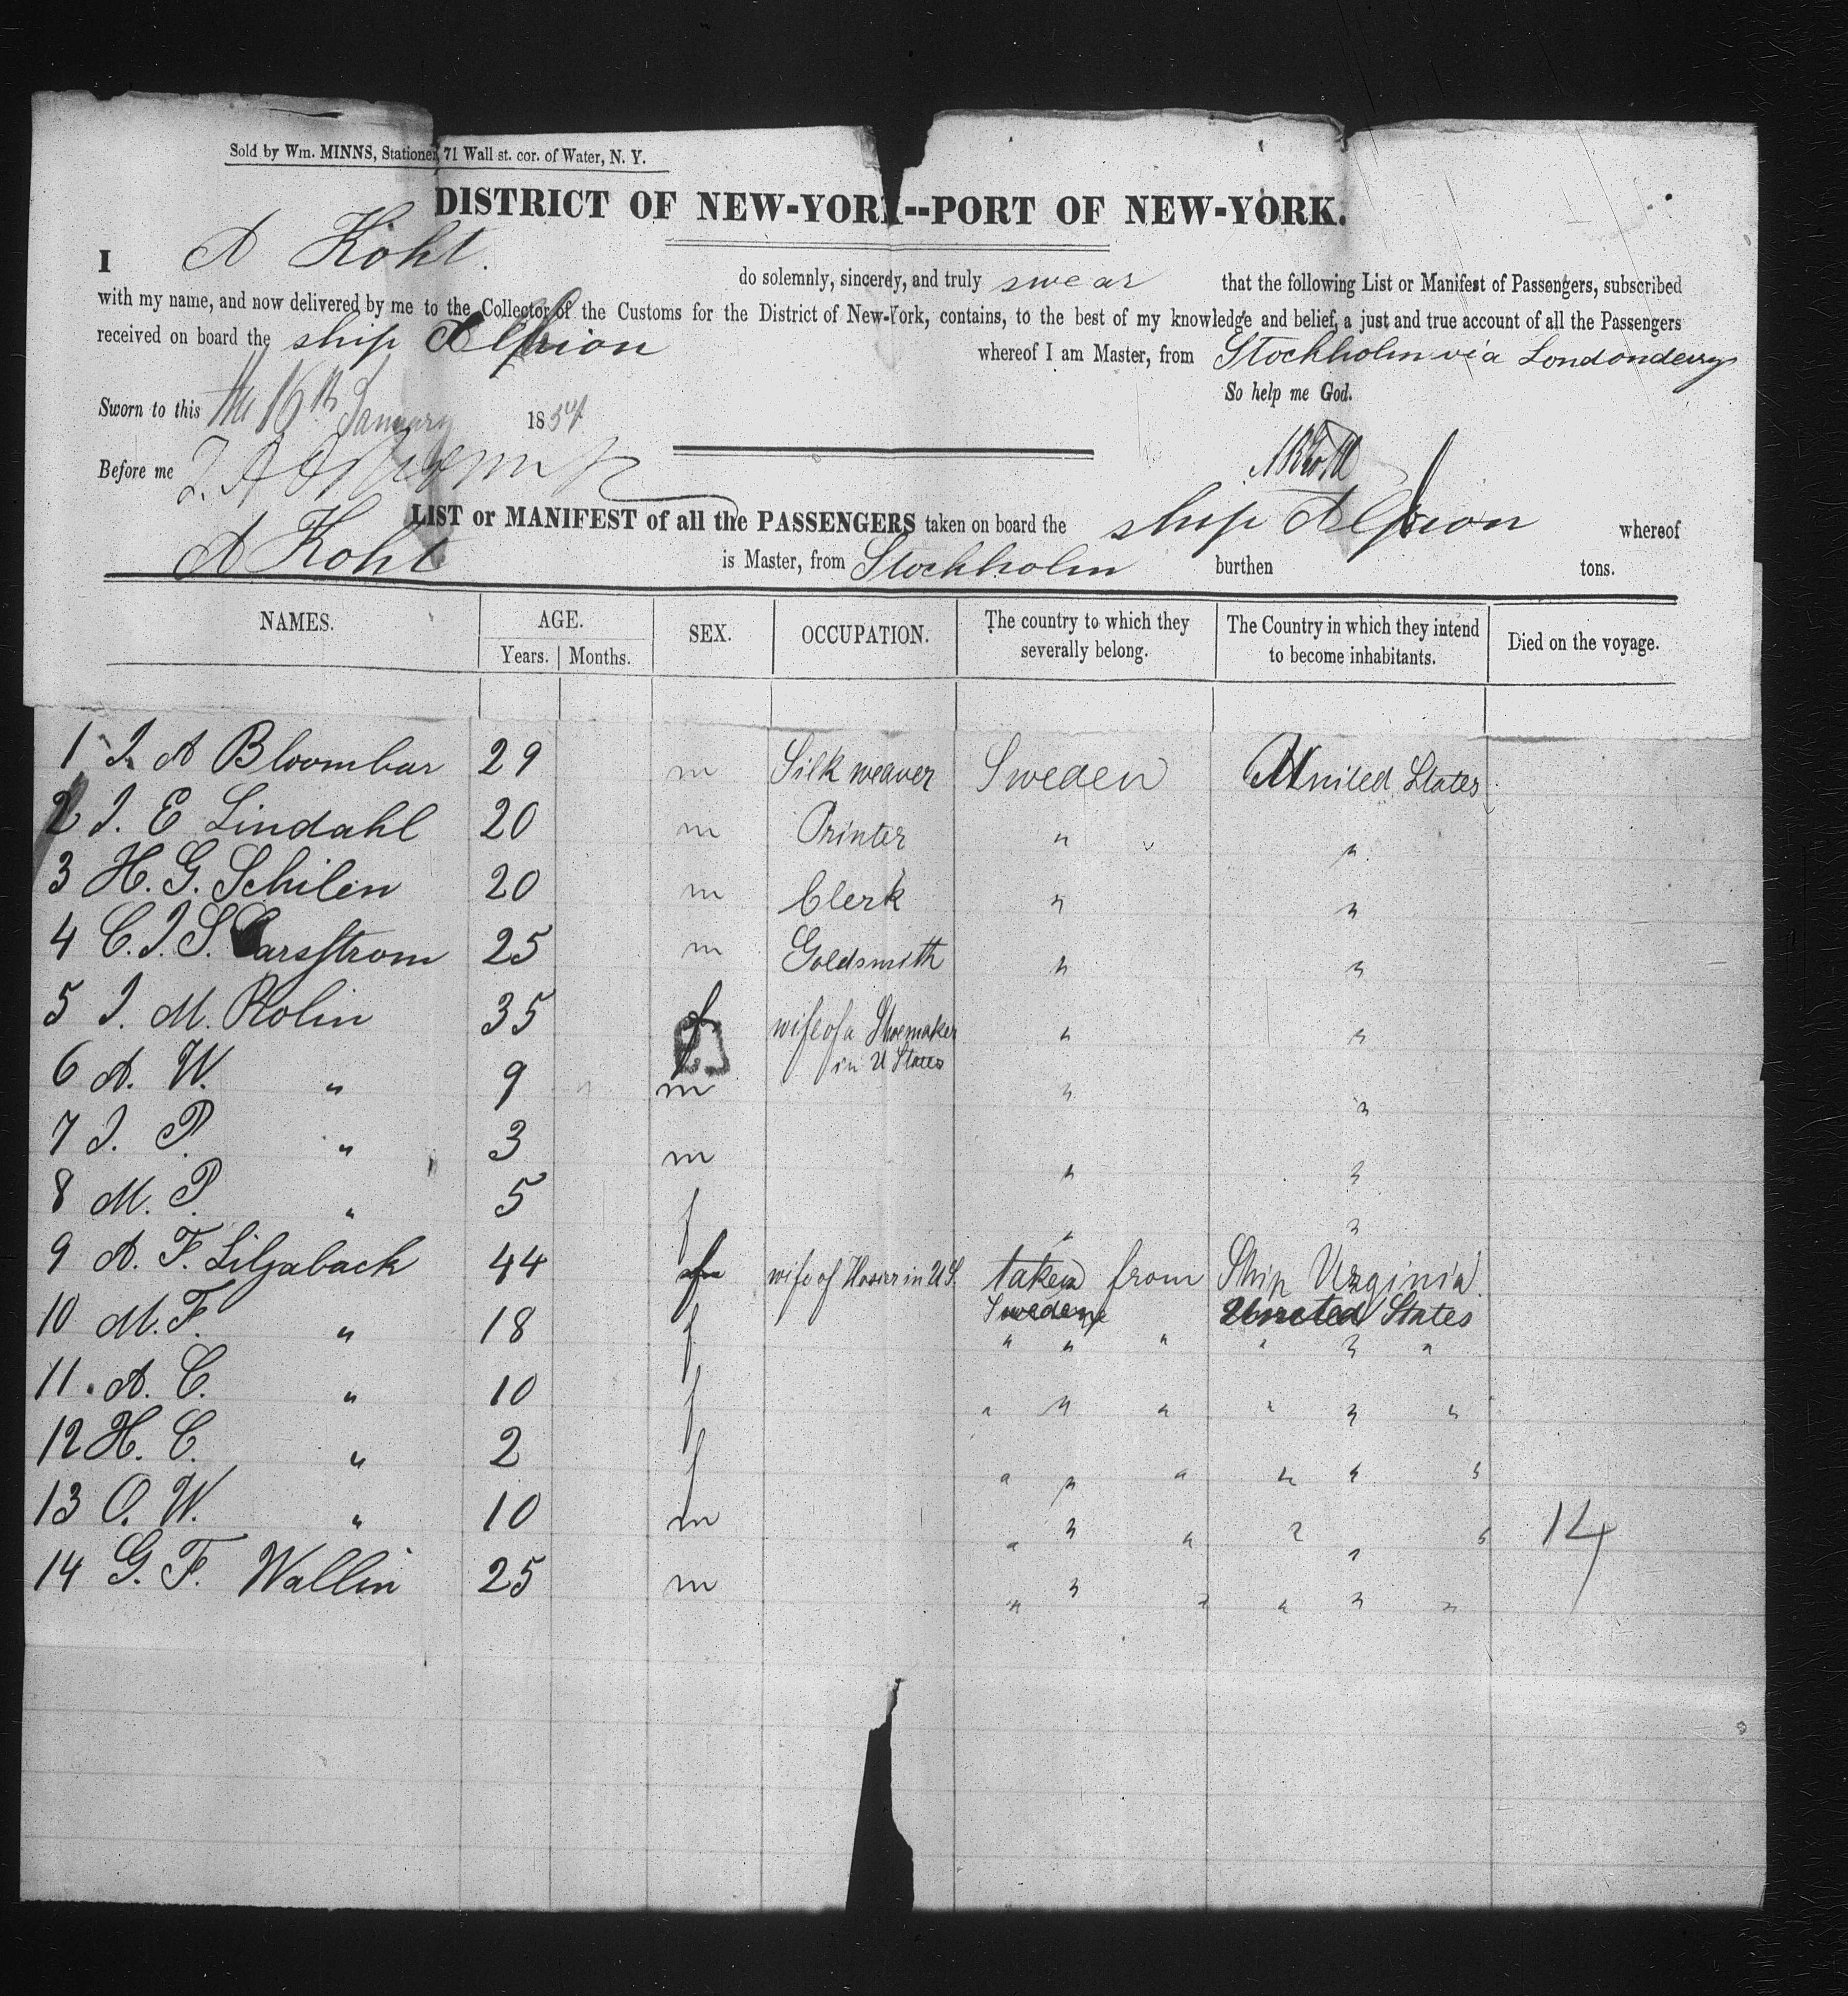 Sold by Wm. MINNS, Stationer, 71 Wall st. cor. of Water, N. Y.
DISTRICT OF NEW-YORK--PORT OF NEW-YORK.
I A Kohl. do solemnly, sincerely, and truly swear that the following List or Manifest of Passengers, subscribed
with my name, and now delivered by me to the Collector of the Customs for the District of New-York, contains, to the best of my knowledge and belief, a just and true account of all the Passengers
received on board the ship whereof I am Master, from Stockholm via Londonderry
So help me God.
Sworn to this the 16th January 1854
Before me
LIST or MANIFEST of all the PASSENGERS taken on board the ship whereof
A Kohl is Master, from Stockholm burthen tons.
NAMES. AGE. SEX. OCCUPATION. The country to which they severally belong. The Country in which they intend to become inhabitants. Died on the voyage.
Years. Months.
1 J. A Bloombar 29 m Silk weaver Sweden United States
2 J. E Lindahl 20 m Printer " "
3 H. G. Schilen 20 m Clerk " "
4 C. J. S. Carsstrom 25 m Goldsmith " "
5 J. M. Rolin 35 f wife of a Shoemaker " "
in U States
6 A. W. " 9 m " "
7 J. P. " 3 m " "
8 M. P. " 5 f " "
9 A. F. Liljaback 44 f wife of Hosier in U S. taken from Ship Virginia.
Sweden United States
10 M. F. " 18 f " " " " " "
11. A. C. " 10 f " " " " " "
12 H. C. " 2 f " " " " " "
13 O. W. " 10 m " " " " " " 14
14 G. F. Wallin 25 m " " " " " "